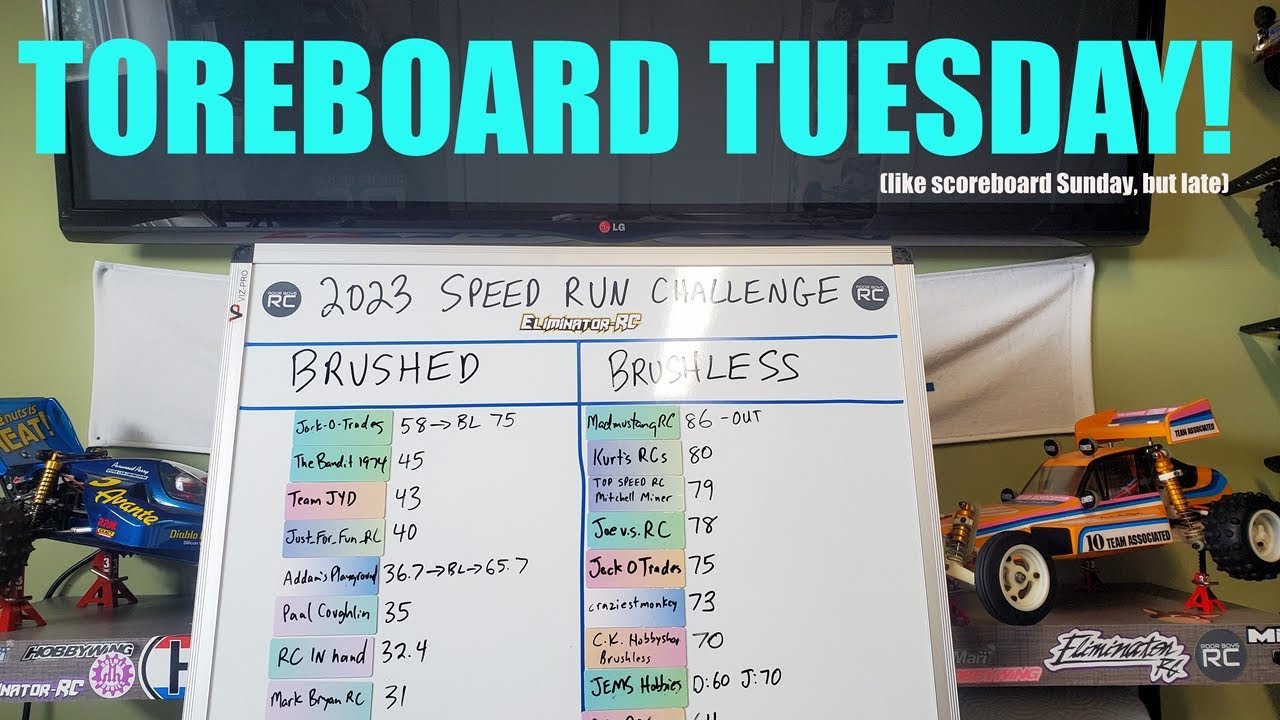 TOREBOARD TUESDAY!
(like scoreboard Sunday, but late)
LG
VIZ-PRO
POOR BOYS RC
2023 SPEED RUN CHALLENGE
POOR BOYS RC
ELIMINATOR-RC
BRUSHED
BRUSHLESS
Jack-O-Trades 58→BL 75
The Bandit 1974 45
Team JYD 43
Just_For_Fun_RC 40
Addam's Playground 36.7→BL→65.7
Paul Coughlin 35
RC IN hand 32.4
Mark Bryan RC 31
MadmustangRC 86 -OUT
Kurt's RCs 80
TOP SPEED RC
Mitchell Miner 79
Joe v.s. RC 78
Jack O Trades 75
craziestmonkey 73
C.K. Hobbyshop
Brushless 70
JEMS Hobbies D:60 J:70
nuts is
EAT!
Avante
Diablo
HOBBYWING
INATOR-RC
TEAM ASSOCIATED
10 TEAM ASSOCIATED
Eliminator RC
POOR BOYS RC
HOBBYWING